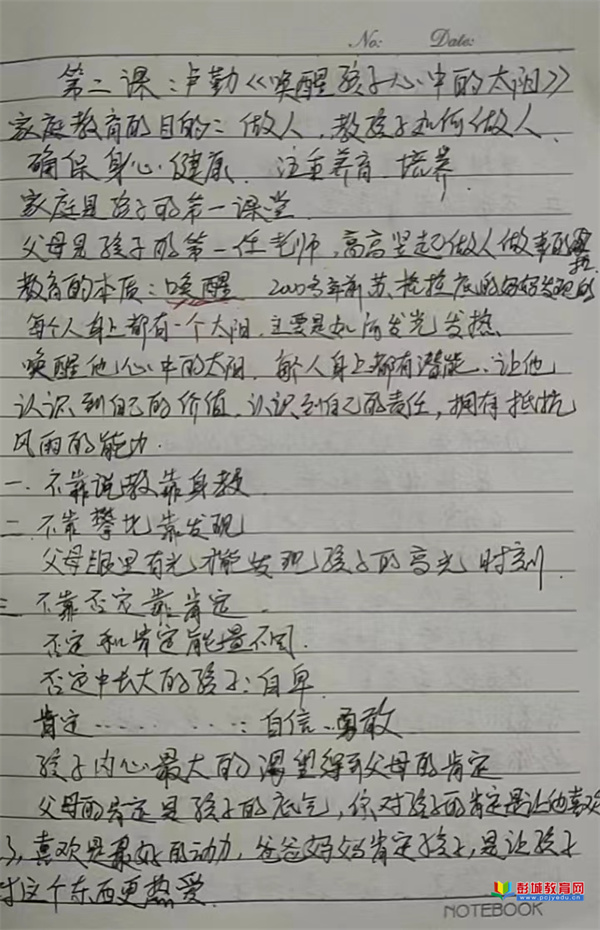 No:    Date:
第二课:卢勤《唤醒孩子心中的太阳》
家庭教育的目的:做人,教孩子如何做人
确保身心健康 注重养育 培养
家庭是孩子的第一课堂
父母是孩子的第一任老师,高高竖起做人做事的
教育的本质:唤醒 2000多年前苏格拉底的妈妈发现的
每个人身上都有一个太阳,主要是如何发光发热
唤醒他心中的太阳,每个人身上都有潜能、让他
认识到自己的价值,认识到自己的责任,拥有抵抗
风雨的能力.
一.不靠说教靠身教
二.不靠攀比靠发现
父母眼里有光才能发现孩子的高光时刻.
三 不靠否定靠肯定.
否定和肯定能量不同.
否定中长大的孩子:自卑
肯定………:自信、勇敢
孩子内心最大的渴望得到父母的肯定
父母的肯定是孩子的底气,你对孩子的肯定是让他喜欢
了,喜欢是最好的动力,爸爸妈妈肯定孩子,是让孩子
对这个东西更热爱.
彭城教育网
www.pcjyedu.cn
NOTEBOOK